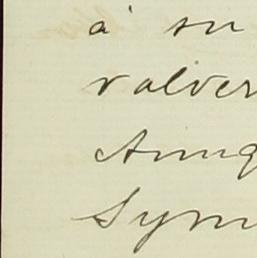 à su
valver
Aunq
Sym